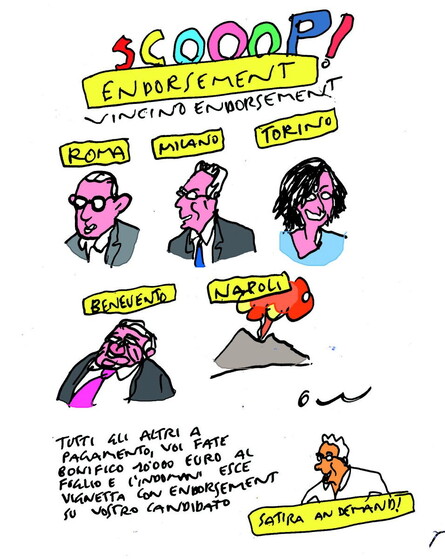 SCOOOP!
ENDORSEMENT
VINCINO ENDORSEMENT
ROMA
MILANO
TORINO
BENEVENTO
NAPOLI
TUTTI GLI ALTRI A
PAGAMENTO, VOI FATE
BONIFICO 10'000 EURO AL
FOGLIO E L'INDOMANI ESCE
VIGNETTA CON ENDORSEMENT
SU VOSTRO CANDIDATO
SATIRA AN DEMAND!